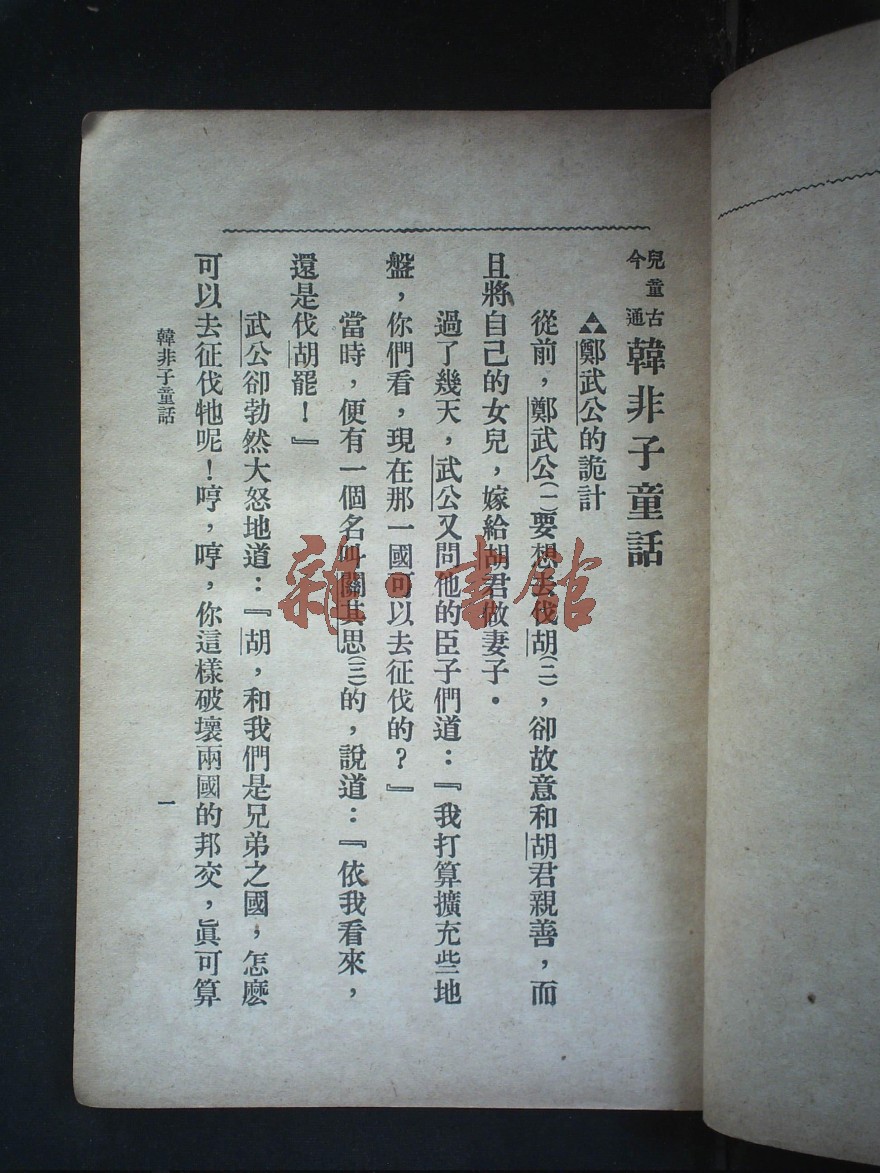 兒童古今通
韓非子童話
鄭武公的詭計
從前，鄭武公(一)要想去伐胡(二)，卻故意和胡君親善，而
且將自己的女兒，嫁給胡君做妻子．
過了幾天，武公又問他的臣子們道：『我打算擴充些地
盤，你們看，現在那一國可以去征伐的？』
當時，便有一個名叫關其思(三)的，說道：『依我看來，
還是伐胡罷！』
武公卻勃然大怒地道：『胡，和我們是兄弟之國，怎麽
可以去征伐牠呢！哼，哼，你這樣破壞兩國的邦交，眞可算
韓非子童話
一
雜·書館